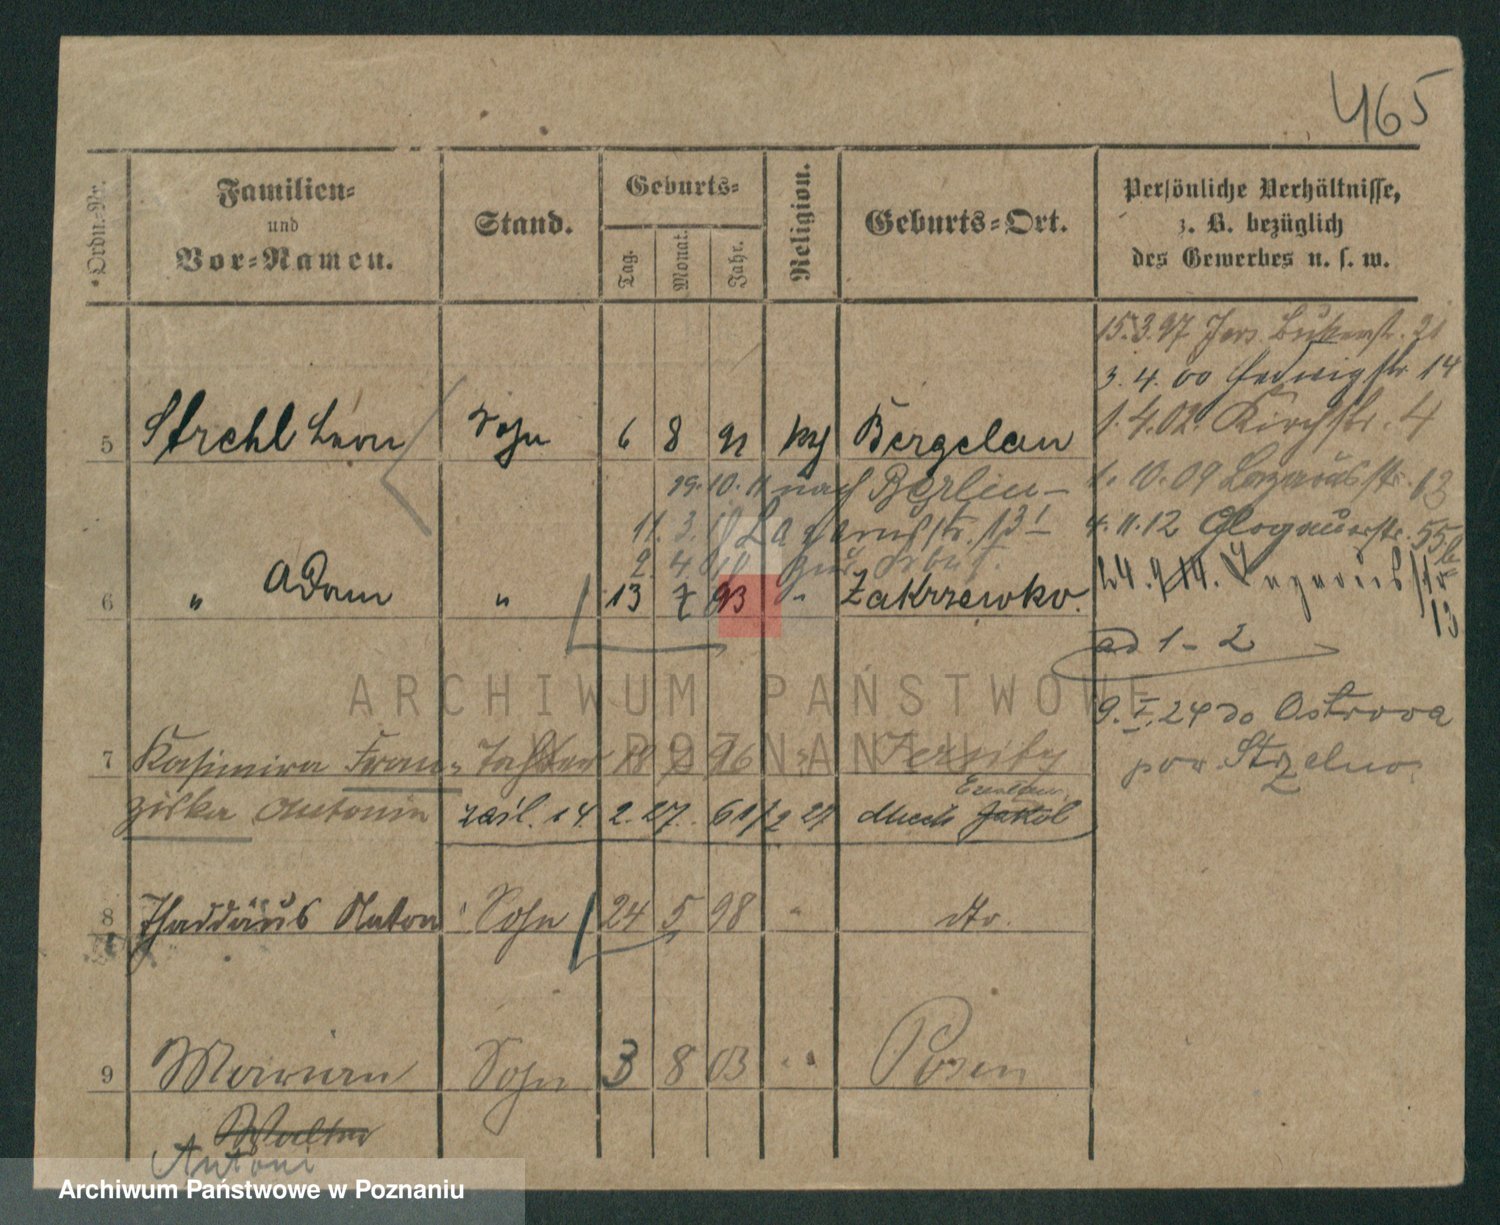 465
Ordn.-Nr.
Familien-
und
Vor-Namen.
Stand.
Geburts-
Tag.
Monat.
Jahr.
Religion.
Geburts-Ort.
Persönliche Verhältnisse,
z. B. bezüglich
des Gewerbes u. s. w.
15.3.97 Jers.
3.4.00 Hedwigstr. 14
1.4.02 Kirchstr. 4
5 Strehl Leon Sohn 6 8 91 Bergelau
19.10.11 nach Berlin
1.10.09 Lazarusstr. 13
11.3. Lazarusstr. 13
4.11.12 Glogauerstr. 55b
2.4.
6 " Adam " 13 7 93 " Zakrzewko.
24. 14. Lazarusstr 13
ad 1-2
9.I.24 do Ostrowa
pow. Strzelno
7 Kasimira Fran- Tochter 18 96 " Jersitz
ziska Antonin zaśl. 14.2.27. 61/2 27
8 Thaddäus Anton Sohn 24 5 98 " dto.
9 Marian Sohn 3 8 03 " Posen
Walter
Antoni
ARCHIWUM PAŃSTWOWE
W POZNANIU
Archiwum Państwowe w Poznaniu